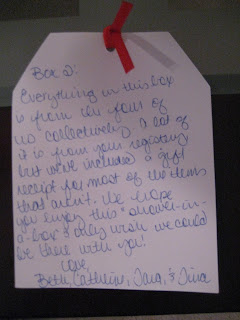 Box 2:
Everything in this box
is from the four of
us collectively. A lot of
it is from your registry
but we've included a gift
receipt for most of the items
that aren't. We hope
you enjoy this "shower-in-
a-box" & only wish we could
be there with you!
Love,
Beth, Catherine, Tara, & Tina